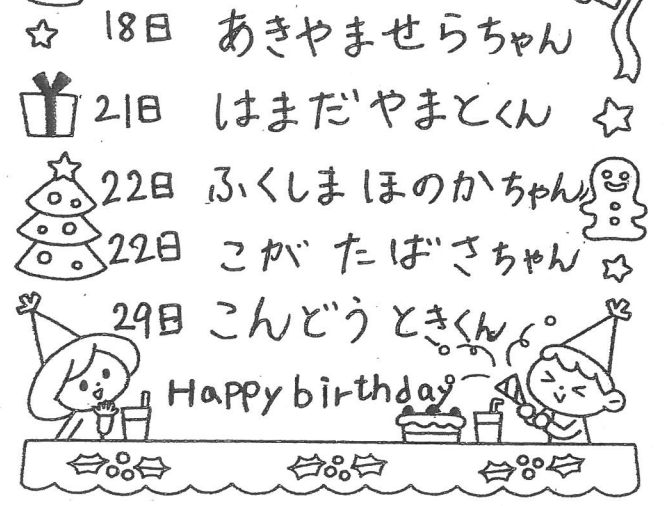 18日 あきやませらちゃん
21日 はまだやまとくん
22日 ふくしまほのかちゃん
22日 こが たばさちゃん
29日 こんどう ときくん
Happy birthday